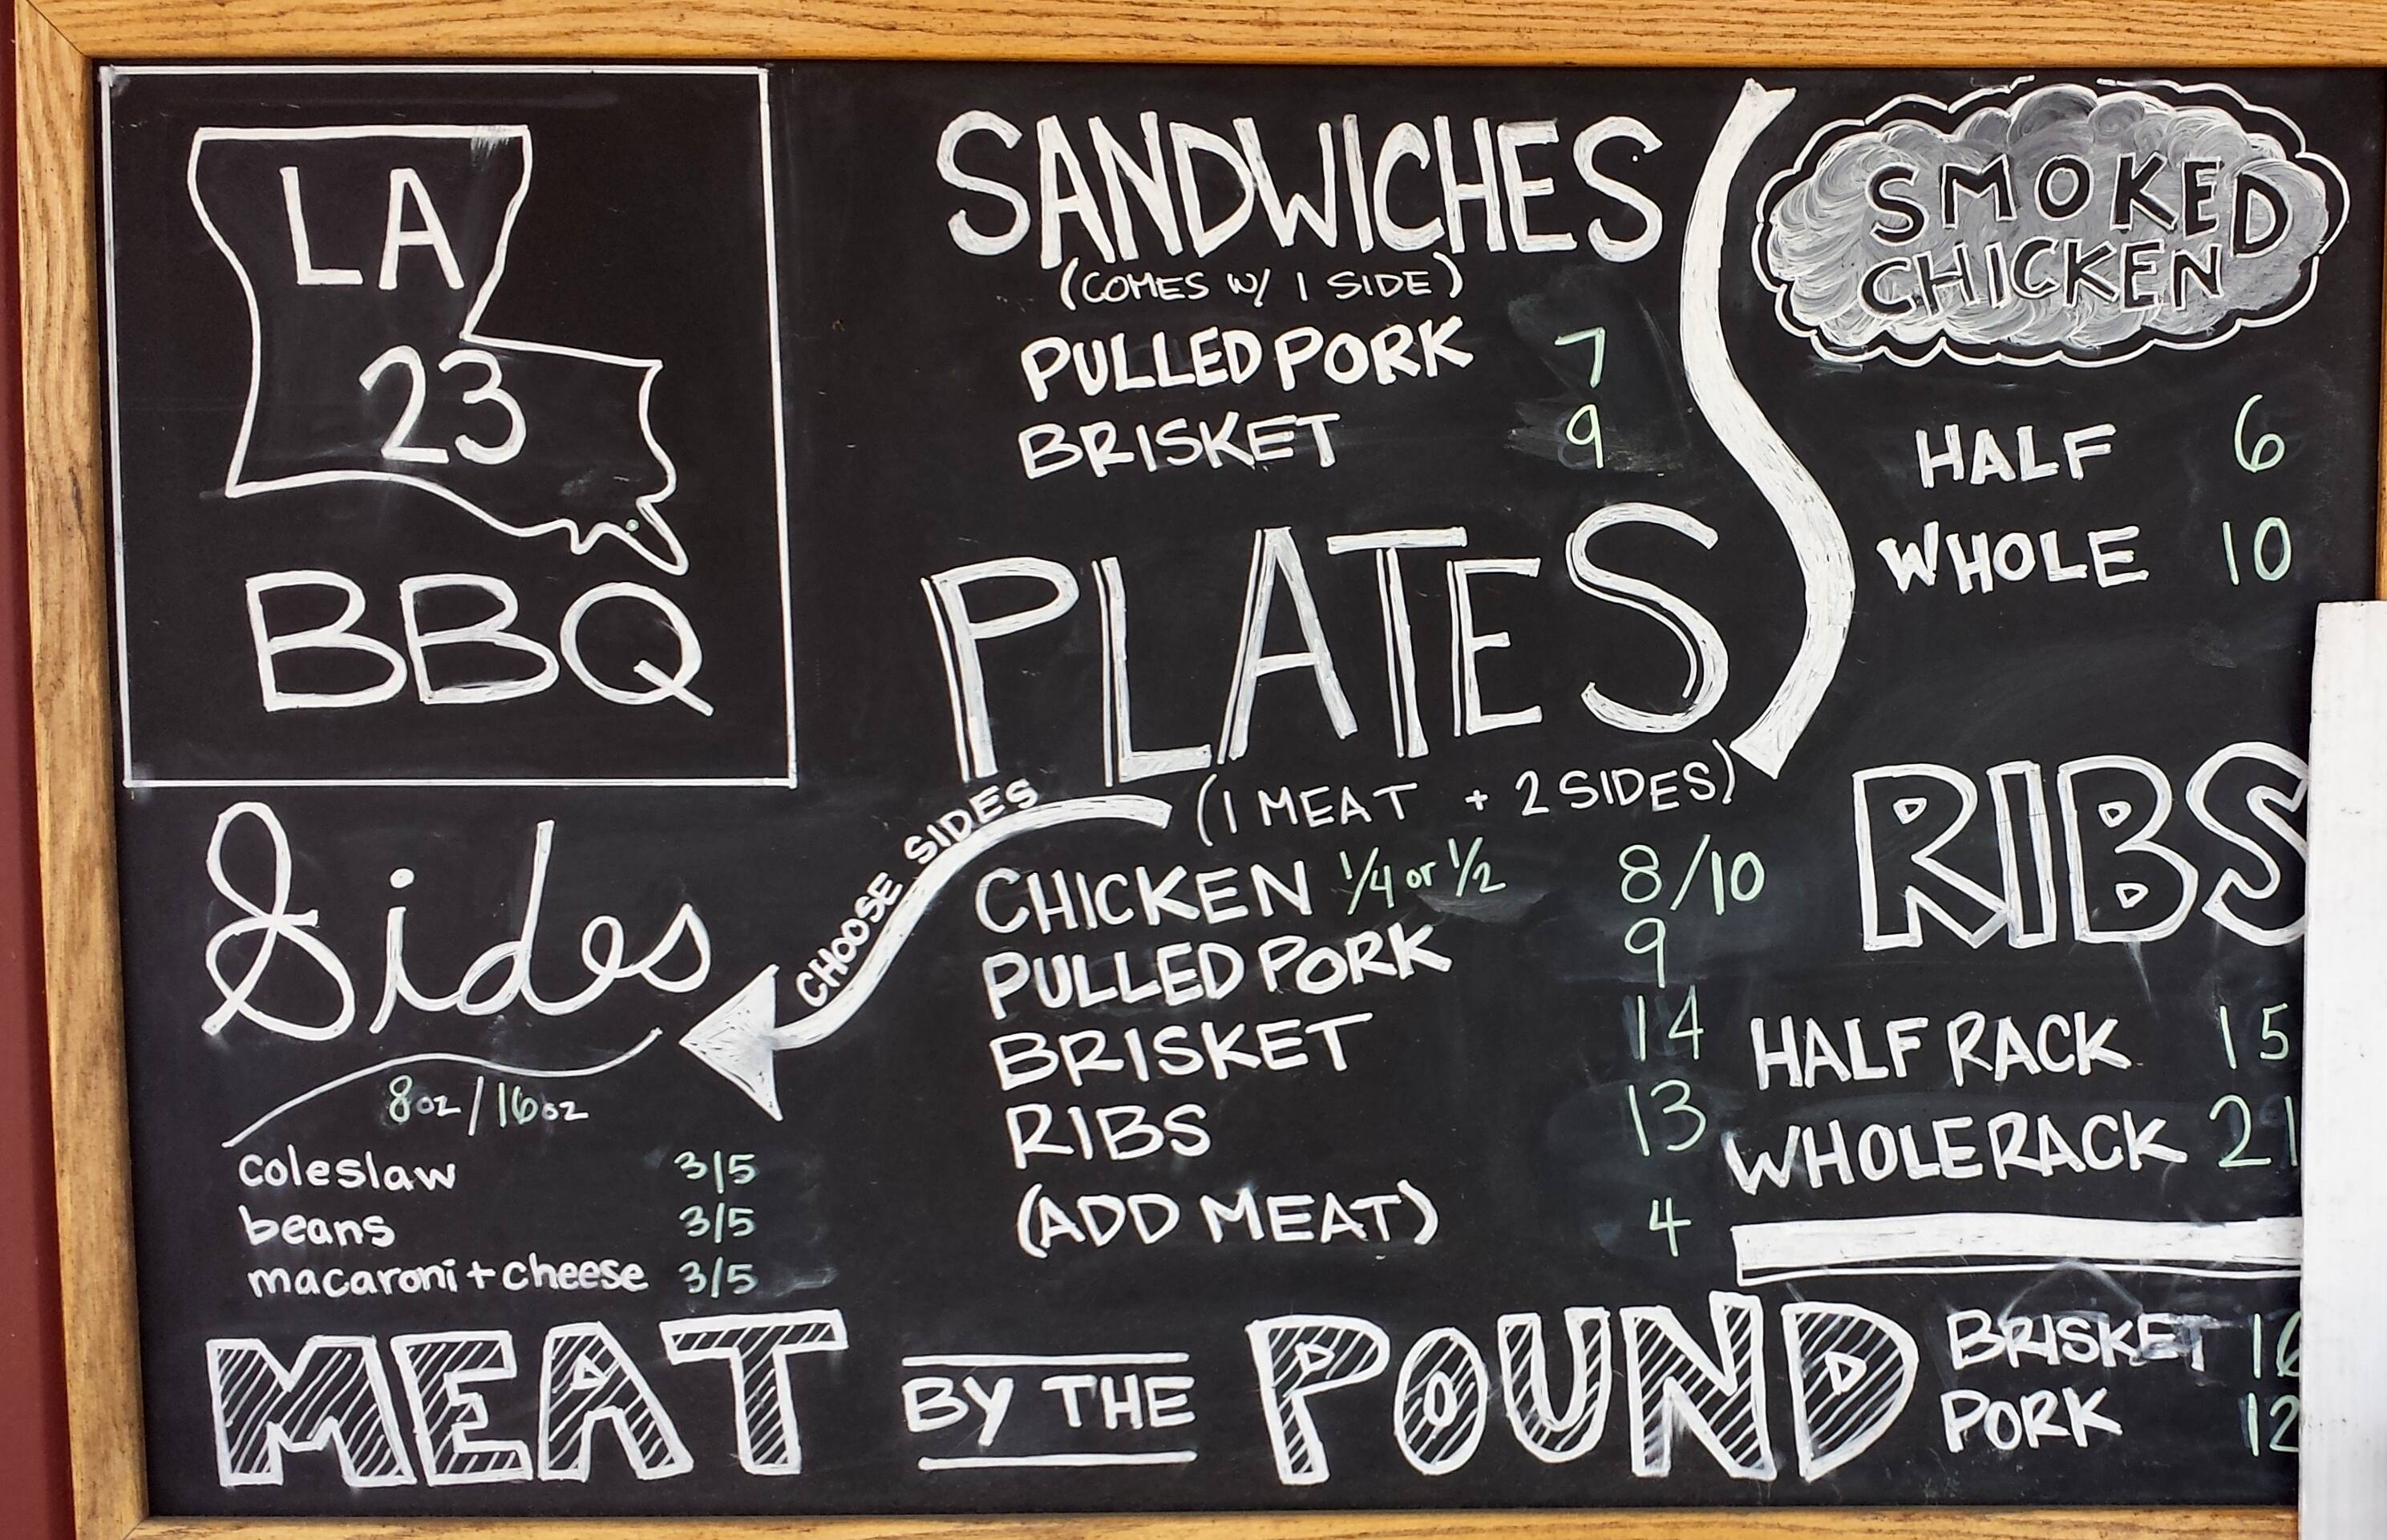 LA
23
BBQ
SANDWICHES
(COMES W/ 1 SIDE)
PULLED PORK 7
BRISKET 9
SMOKED
CHICKEN
HALF 6
WHOLE 10
PLATES
(1 MEAT + 2 SIDES)
CHOOSE SIDES
CHICKEN 1/4 or 1/2 8/10
PULLED PORK 9
BRISKET 14
RIBS 13
(ADD MEAT) 4
RIBS
HALF RACK 15
WHOLE RACK 21
Sides
8oz/16oz
coleslaw 3/5
beans 3/5
macaroni + cheese 3/5
MEAT BY THE POUND
BRISKET
PORK 12